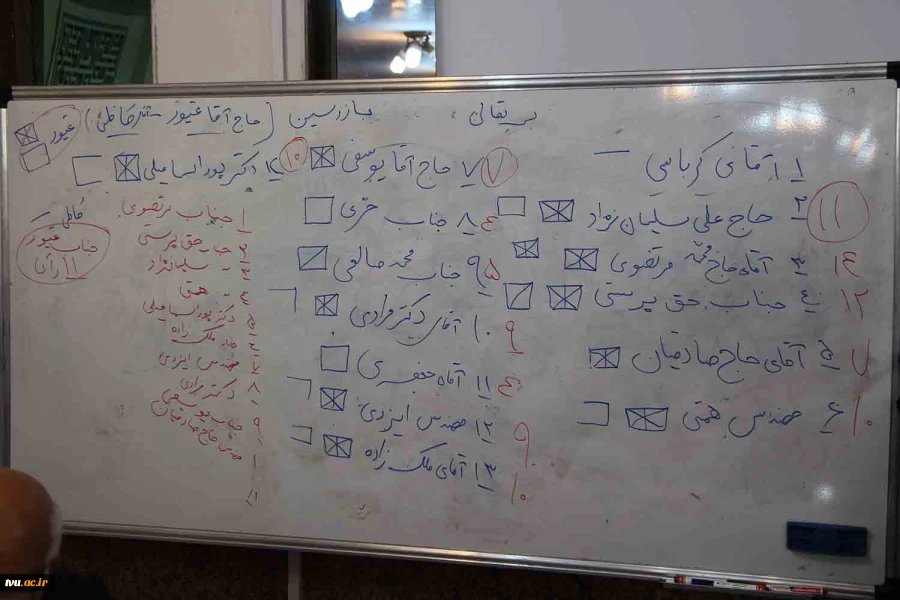 بازرسین (حاج آقا غیور -
غیور
۱ آقای کرباسی
۲ حاج علی سلیمان نژاد
۱۱
۳ آقای حاج محمد مرتضوی
۱۴
۴ جناب حق پرستی
۱۲
۵ آقای حاج صادقیان
۷
۶ مهندس همتی
۱۰
۷ حاج آقا یوسفی
۷
۸ جناب حری
۴
۹ جناب محمد صالحی
۵
۱۰ آقای دکتر مرادی
۹
۱۱ آقای جعفری
۴
۱۲ مهندس ایزدی
۹
۱۳ آقای ملک زاده
۱۰
۱۴ دکتر پور اسماعیلی
۱۰
۱ جناب مرتضوی
۲ جناب حق پرستی
۳ سلیمان نژاد
۴ همتی
۵ دکتر پور اسماعیلی
۶ ملک زاده
۷ مهندس ایزدی
۸ دکتر مرادی
۹ جناب یوسفی
حاج صادقیان
جناب غیور
۱۱ رأی
tvu.ac.ir